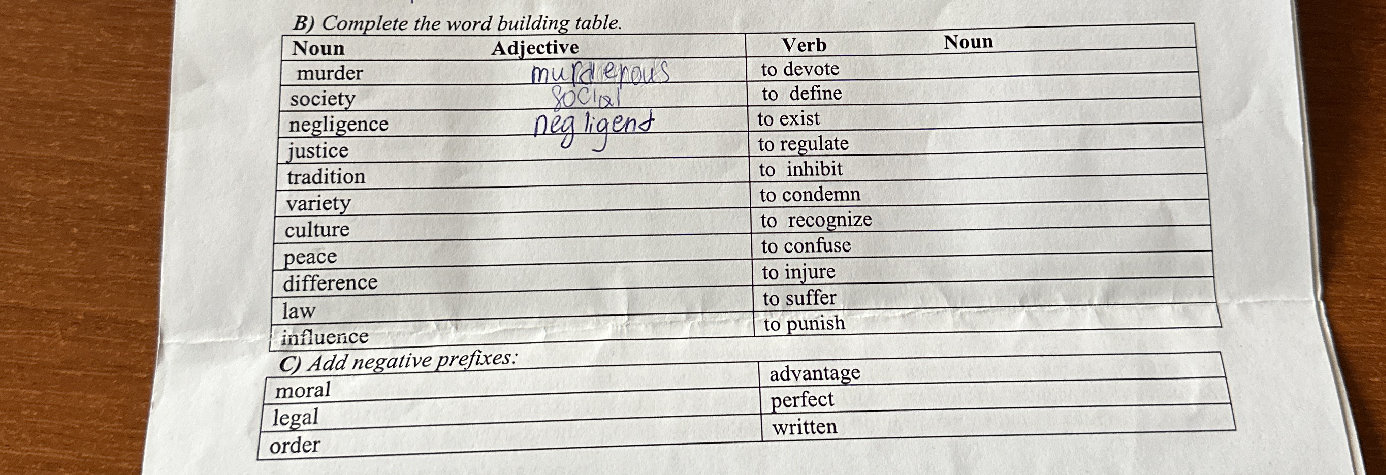 B) Complete the word building table.
Noun Adjective Verb Noun
murder murderous to devote
society social to define
negligence negligent to exist
justice to regulate
tradition to inhibit
variety to condemn
culture to recognize
peace to confuse
difference to injure
law to suffer
influence to punish
C) Add negative prefixes:
moral advantage
legal perfect
order written